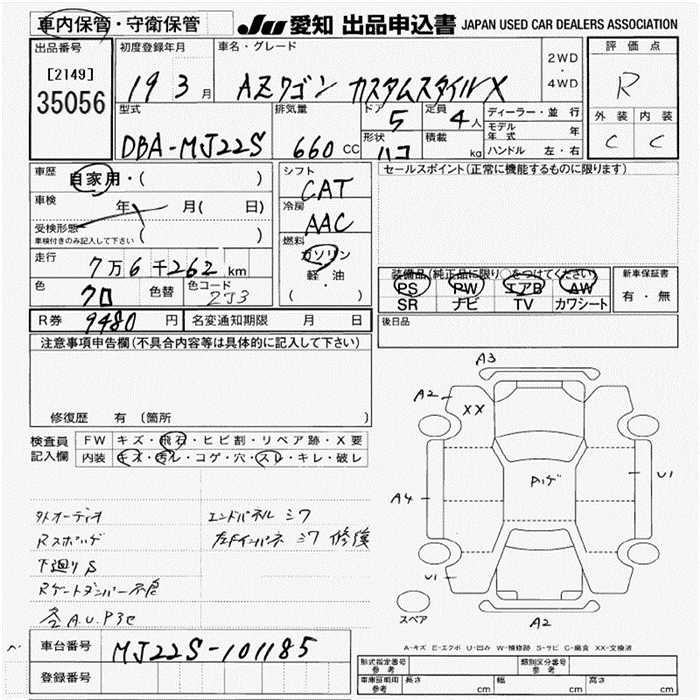 車内保管・守衛保管
JU 愛知 出品申込書 JAPAN USED CAR DEALERS ASSOCIATION
出品番号
[2149]
35056
初度登録年月
19 3月
車名・グレード
AZワゴン カスタムスタイルX
2WD
・
4WD
評価点
R
外装 内装
C C
型式
DBA-MJ22S
排気量
660cc
ドア
5
定員
4人
形状
ハコ
積載
kg
ディーラー・並行
モデル年式 年
ハンドル 左・右
車歴
自家用・( )
車検
年 月( 日)
受検形態
車検付きのみ記入して下さい
( )
走行
7万6千262km
色
クロ
色替
色コード
ZJ3
シフト
CAT
冷房
AAC
燃料
ガソリン
軽・油
( ・ )
R券 9480円
名変通知期限 月 日
セールスポイント(正常に機能するものに限ります)
装備品(純正品に限り)○をつけてください
PS PW エアB AW
SR ナビ TV カワシート
新車保証書
有・無
後日品
注意事項申告欄(不具合内容等は具体的に記入して下さい)
修復歴 有(箇所 )
検査員記入欄
FW キズ・飛石・ヒビ割・リペア跡・X要
内装 キズ・汚レ・コゲ・穴・スレ・キレ・破レ
外オーディオ
Rスポッゲ
下廻りS
Rゲートダンパー不良
各A.U.P3セ
エンドパネルシワ
左Fインパネシワ 修復
A3
A2
XX
A4
Pハゲ
U1
U1
A2
スペア
A-キズ E-エクボ U-凹み W-補修跡 S-サビ C-腐食 XX-交換済
車台番号 MJ22S-101185
登録番号
形式指定番号
参考
類別区分番号
参考
車庫証明用
参考
長さ cm 幅 cm 高さ cm